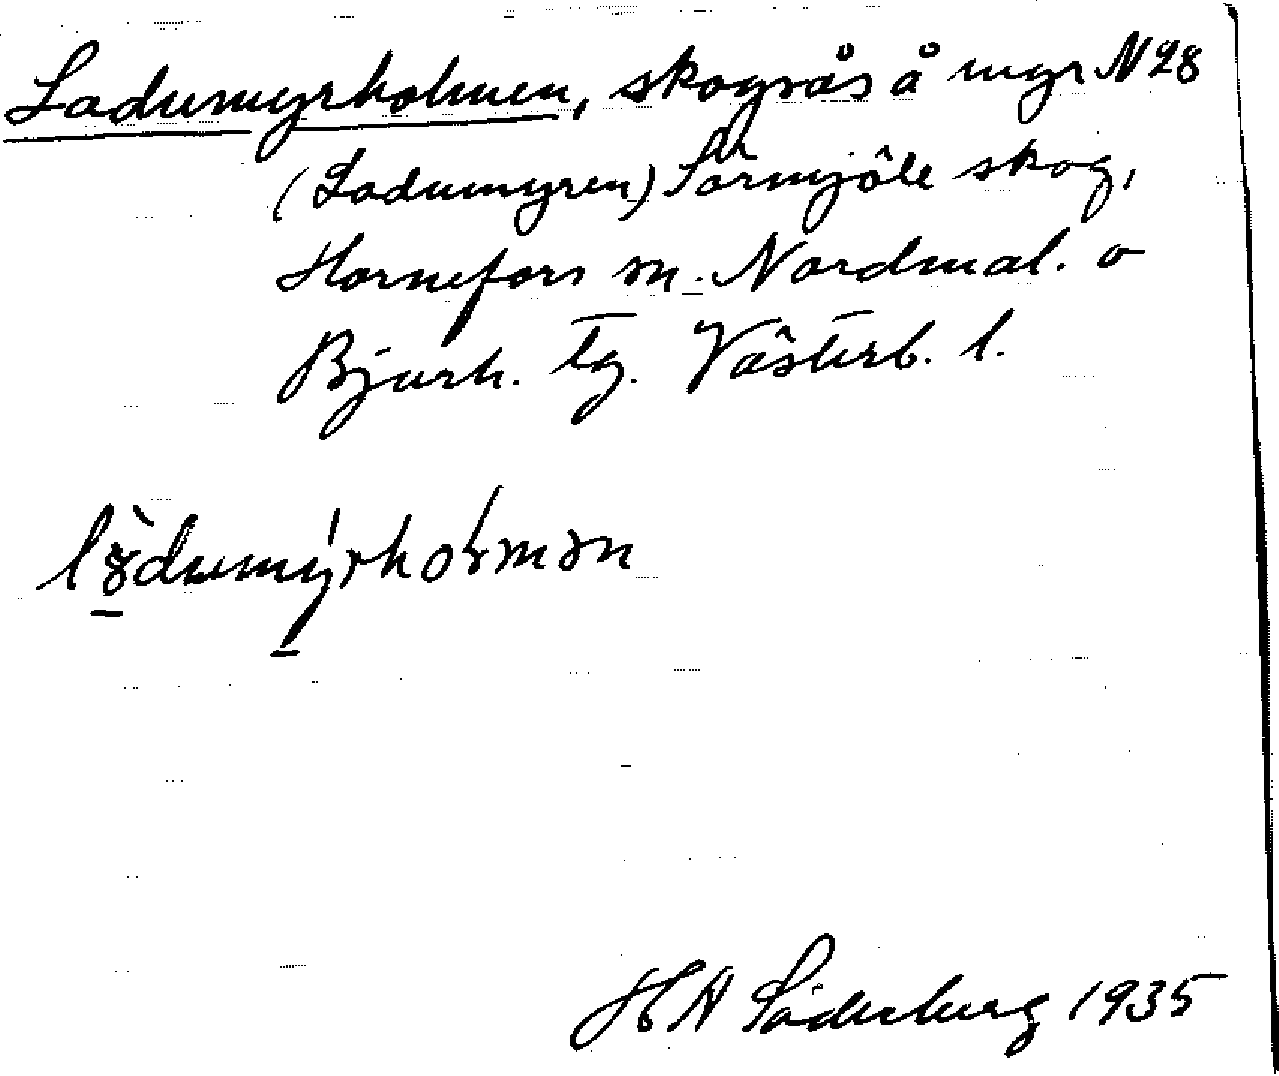 Ladumyrholmen, skogsås å myr N 28
(Ladumyren) Sörmjöle skog,
Hörnefors sn. Nordmal. o
Bjurh. tg. Västerb. l.
H A Söderberg 1935